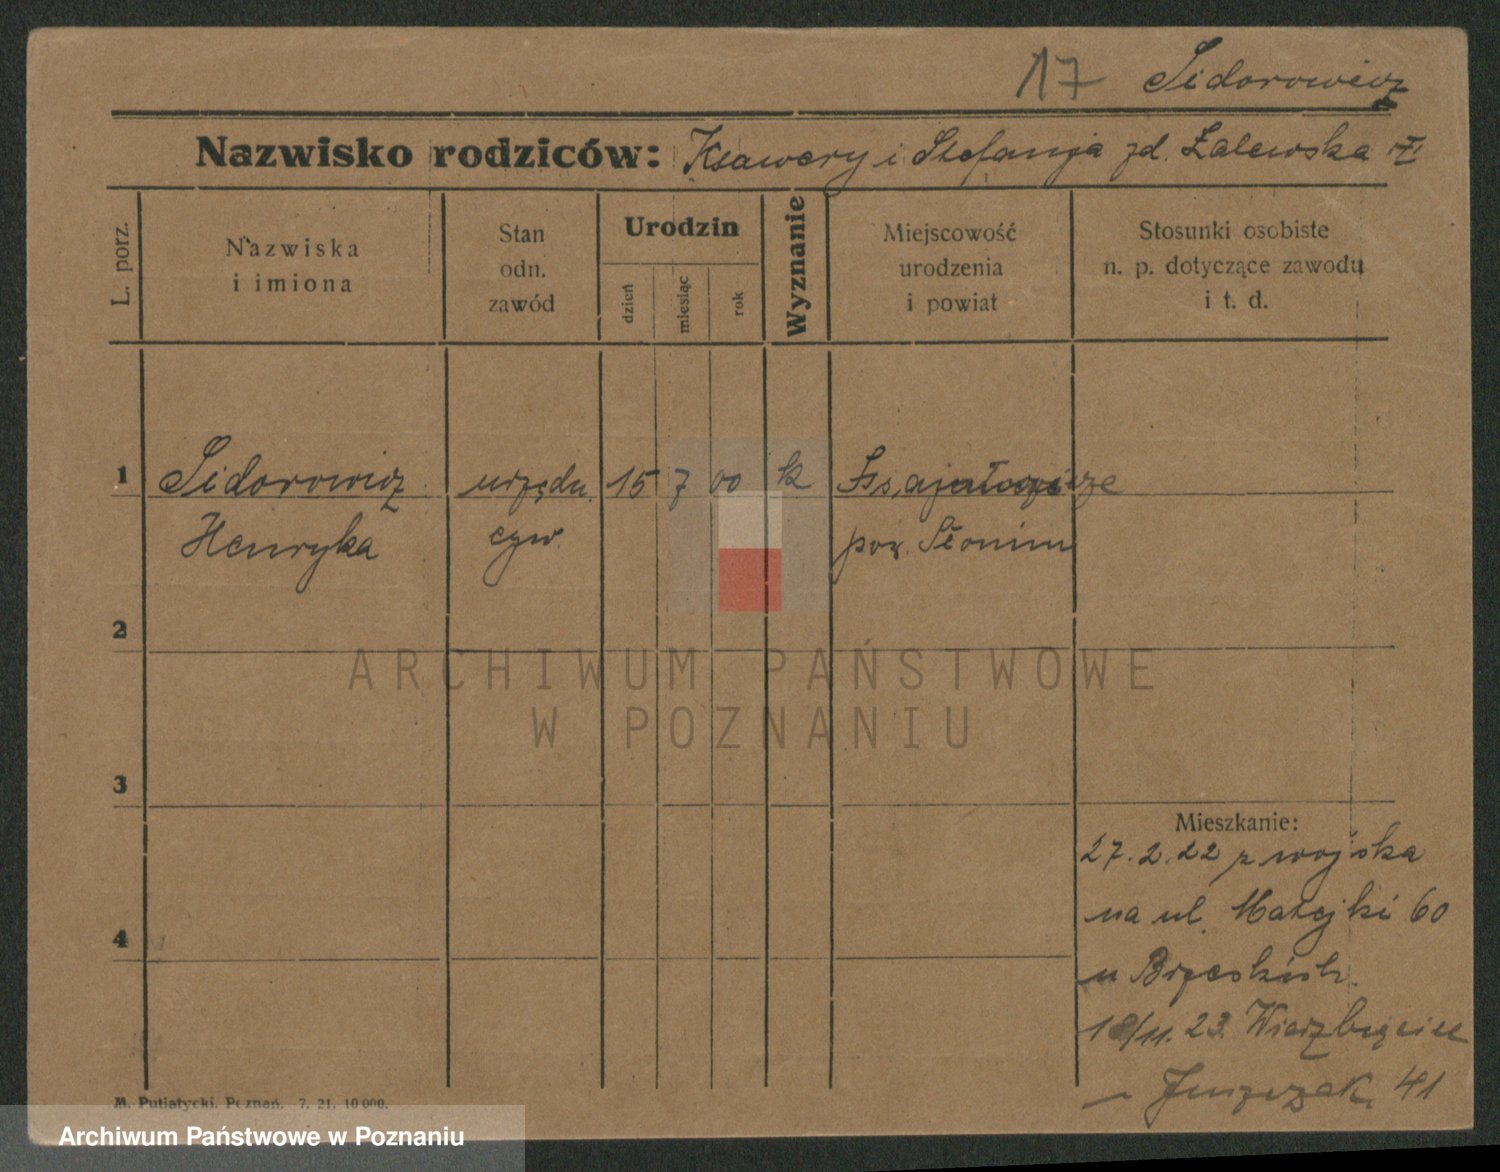 17 Sidorowicz
Nazwisko rodziców: Ksawery i Stefanja zd. Zalewska
L. porz.
Nazwiska
i imiona
Stan
odn.
zawód
Urodzin
dzień
miesiąc
rok
Wyznanie
Miejscowość
urodzenia
i powiat
Stosunki osobiste
n. p. dotyczące zawodu
i t. d.
1 Sidorowicz urzędn. 15 7 00 k
Henryka cyw. pow. Słonim
2
3
4
Mieszkanie:
27.2.22 z wojska
na ul. Matejki 60
u Brzeskich
18/11.23. Wierzbięcice
41
M. Putiatycki, Poznań. 7. 21. 10 000.
ARCHIWUM PAŃSTWOWE
W POZNANIU
Archiwum Państwowe w Poznaniu